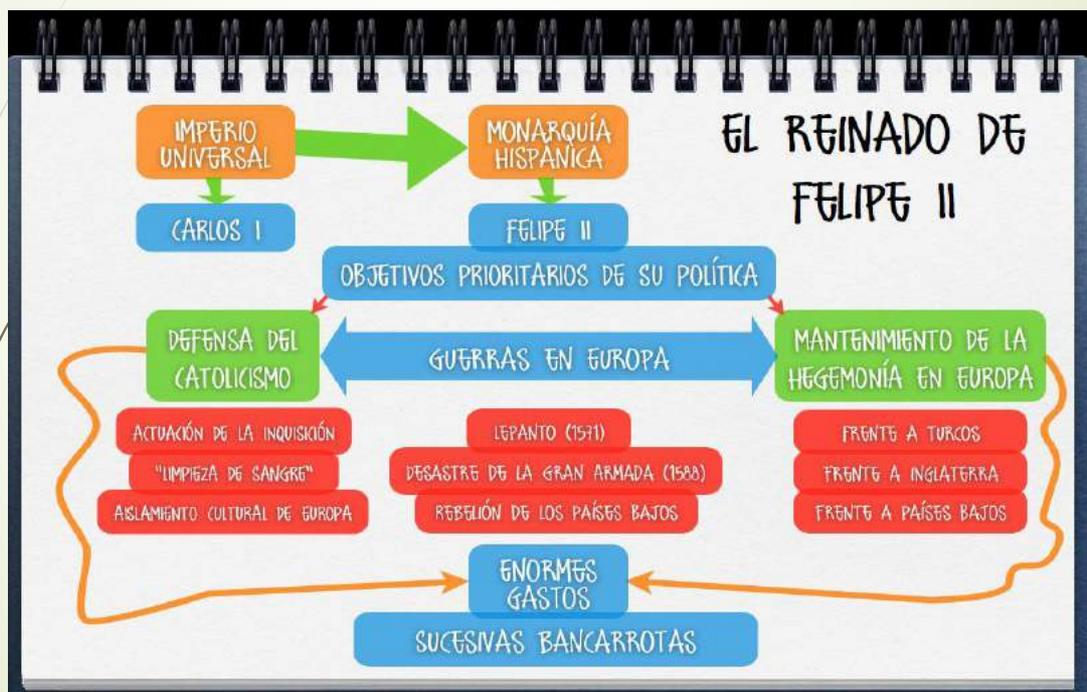 EL REINADO DE
FELIPE II
IMPERIO
UNIVERSAL
MONARQUÍA
HISPÁNICA
CARLOS I
FELIPE II
OBJETIVOS PRIORITARIOS DE SU POLÍTICA
DEFENSA DEL
CATOLICISMO
GUERRAS EN EUROPA
MANTENIMIENTO DE LA
HEGEMONÍA EN EUROPA
ACTUACIÓN DE LA INQUISICIÓN
"LIMPIEZA DE SANGRE"
AISLAMIENTO CULTURAL DE EUROPA
LEPANTO (1571)
DESASTRE DE LA GRAN ARMADA (1588)
REBELIÓN DE LOS PAÍSES BAJOS
FRENTE A TURCOS
FRENTE A INGLATERRA
FRENTE A PAÍSES BAJOS
ENORMES
GASTOS
SUCESIVAS BANCARROTAS